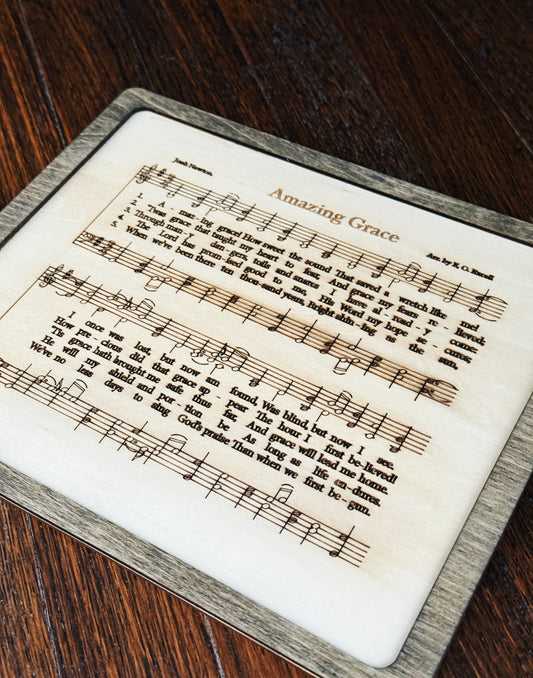 Amazing Grace
John Newton.
Arr. by E. O. Excell
1. A - maz - ing grace! How sweet the sound That saved a wretch like me!
2. 'Twas grace that taught my heart to fear, And grace my fears re - lieved;
3. Through man - y dan - gers, toils and snares I have al - read - y come.
4. The Lord has prom - ised good to me, His Word my hope se - cures;
5. When we've been there ten thou - sand years, Bright shin - ing as the sun,
I once was lost, but now am found, Was blind, but now I see.
How pre - cious did that grace ap - pear The hour I first be - lieved!
'Tis grace hath brought me safe thus far, And grace will lead me home.
He will my shield and por - tion be As long as life en - dures.
We've no less days to sing God's praise Than when we first be - gun.